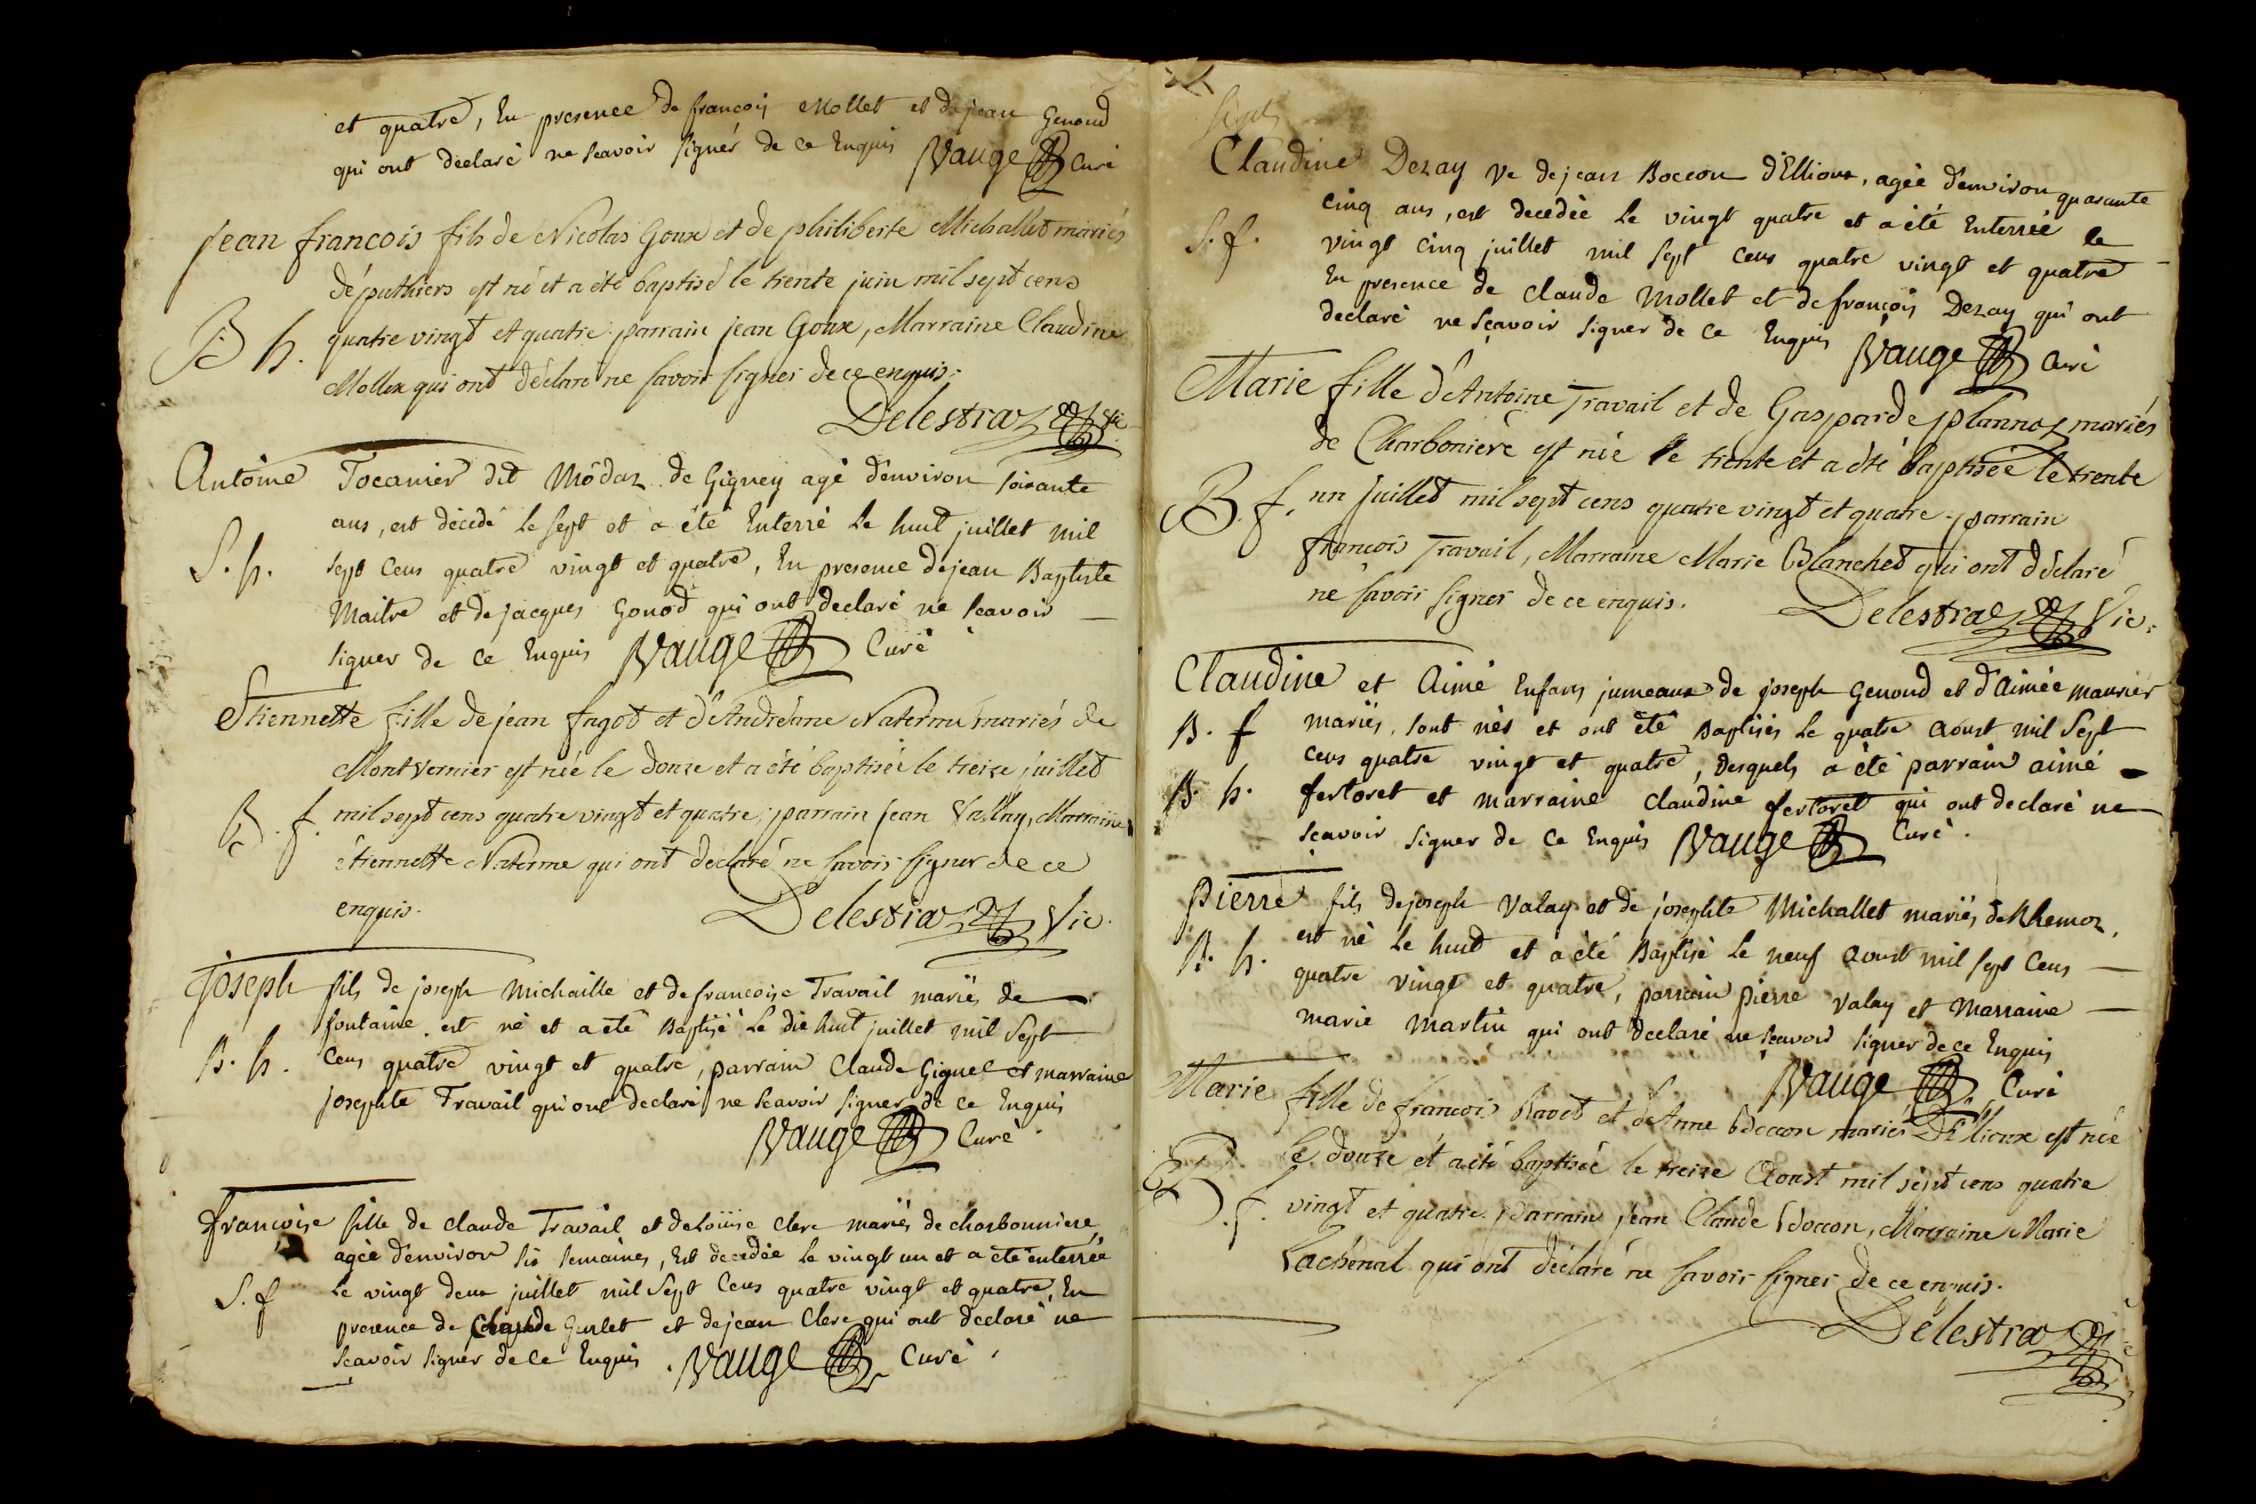 et quatre, En presence de françois Mollet et de jean Genoud
qui ont declaré ne scavoir signér de ce Enquis Vauge Curé
jean francois fils de Nicolas Goux et de philiberte Michallet mariés
députhiers est né et a été baptisé le trente juin mil sept cens
B h. quatre vingt et quatre. parrain jean Goux, Marraine Claudine
Mollex qui ont déclaré ne savoir signer de ce enquis.
Delestraz Vic
Antoine Tocanier dit Môdaz de Gigney agé d'environ soixante
ans, est décédé le sept et a été Enterré le huit juillet mil
S. h. sept cens quatre vingt et quatre, En presence de jean Baptiste
Maitre et de jacques Gonod qui ont declaré ne scavoir
signer de ce Enquis Vauge Curé
Etiennette fille de jean fagot et d'Andréane Naterme mariés de
Montvernier est née le douze et a été baptisée le treize juillet
B. f. mil sept cens quatre vingt et quatre; parrain jean Vallay, Marraine
étiennette Naterme qui ont declaré ne savoir signer de ce
enquis.
Delestraz Vic.
joseph fils de joseph Michaille et de francoise Travail mariés de
fontaine. est né et a eté Baptisé le dix huit juillet mil sept
B. h. cens quatre vingt et quatre, parrain Claude Giguet et marraine
josephte Travail qui ont declaré ne scavoir signer de ce Enquis
Vauge Curé.
francoise fille de claude Travail et de Loüise Clerc mariés de charbonniere
agée d'environ six semaines, Est decedée le vingt un et a été enterrée
S. f le vingt deux juillet mil sept cens quatre vingt et quatre, En
presence de Claude Gurlet et de jean Clerc qui ont declaré ne
scavoir signer de ce Enquis. Vauge Curé.
sept
Claudine Dezay ve de jean Boccon d'Ellioux, agée d'environ quarante
cinq ans, est decedée le vingt quatre et a été Enterrée le
S. f. vingt cinq juillet mil sept cens quatre vingt et quatre
En presence de claude Mollet et de françois Dezay qui ont
declaré ne sçavoir signer de ce Enquis Vauge Curé
Marie fille d'Antoine Travail et de Gasparde plannaz mariés
de Charboniere est née le trente et a été baptisée le trente
B. f. un juillet mil sept cens quatre vingt et quatre. parrain
françois Travail, Marraine Marie Blanchet qui ont déclaré
ne savoir signer de ce enquis.
Delestraz Vic.
Claudine et Aimé Enfans jumeaux de joseph Genoud et d'Aimée maurier
B. f mariés, sont nés et ont été Baptisés le quatre Aoust mil sept
cens quatre vingt et quatre, desquels a été parrain aimé
B. h. fertoret et marraine claudine fertoret qui ont declaré ne
sçavoir signer de ce Enquis Vauge Curé.
Pierre fils de joseph Valay et de josephte Michallet mariés de Rhemoz,
est né le huit et a été Baptisé le neuf Aoust mil sept cens
B. h. quatre vingt et quatre, parrain pierre Valay et marraine
marie martin qui ont declaré ne scavoir signer de ce Enquis
Vauge Curé
Marie fille de françois Ravet et d'Anne Boccon mariés D'Ellioux est née
le douze et a été baptisée le treize Aoust mil sept cens quatre
B. f. vingt et quatre. parrain jean Claude Boccon, Marraine Marie
Lachenal qui ont déclaré ne savoir signer de ce enquis.
Délestraz